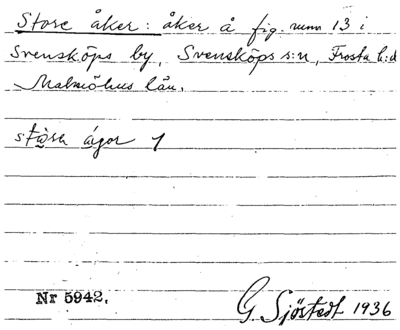 Store åker: åker å fig. num 13 i
Svensköps by, Svensköps s:n, Frosta h:d
Malmöhus län.
ågor 1
Nr 5942.
G. Sjöstedt 1936